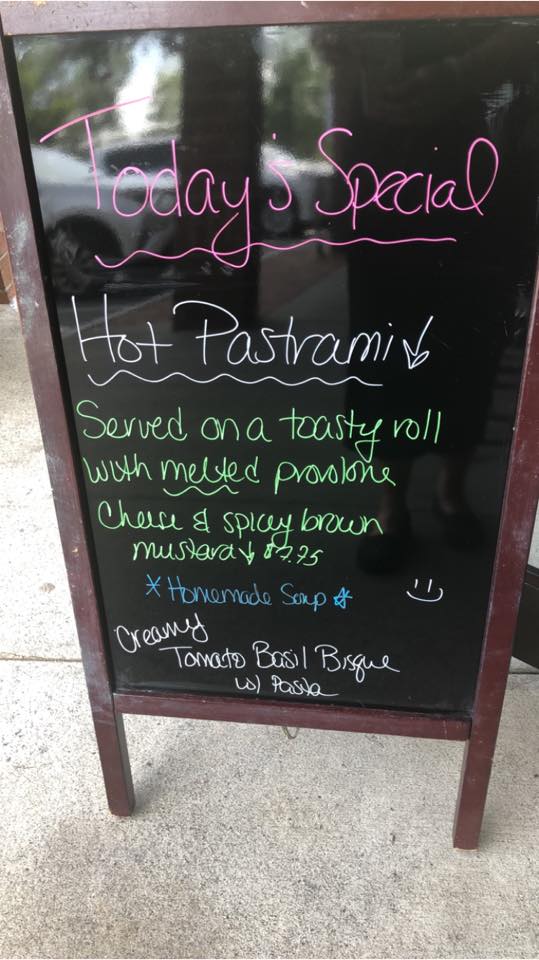 Today's Special
Hot Pastrami
Served on a toasty roll
with melted provolone
Cheese & spicy brown
mustard $7.75
* Homemade Soup *
Creamy
Tomato Basil Bisque
w/ Pasta